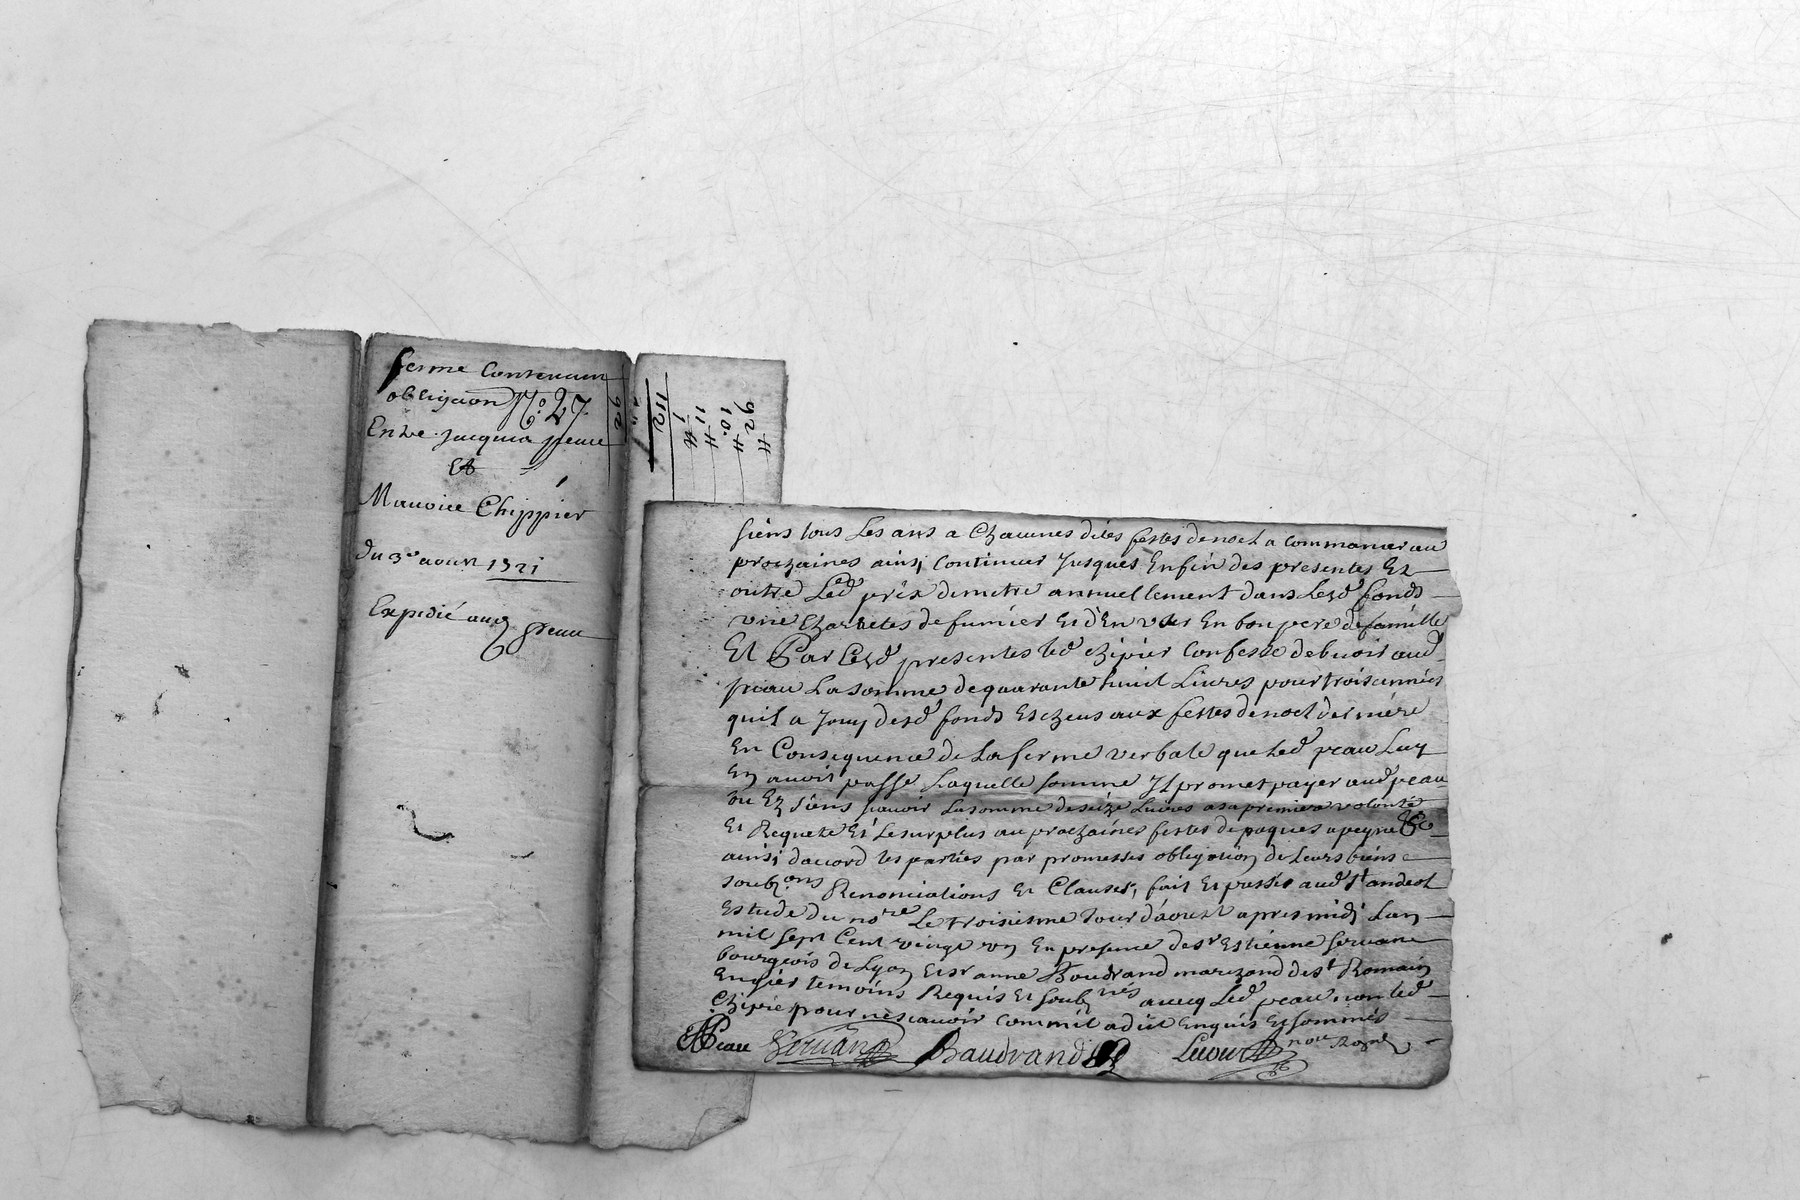 ferme Contenant
obligaon N.o 27
Entre jacques peau
Et
Maurice Chippier
du 3e aoust 1721
Expedié aud peau
92 ₶
10. ₶
11 ₶
1 ₶
112
92
siens tous Les ans a Chacunes dites festes de noel a commancer au
prochaines ainsi continuer Jusques Enfin des presentes Et
outre Led prix de metre annuellement dans Lesd fonds
vne charretes de fumier Et d'En vser En bon pere de famille
Et Par Cesd presentes led chipier Confesse debuoir aud
peau La somme de quarante huit Liures pour trois années
quil a Jouy desd fonds Escheus aux festes de noel derniere
En Consequence de La ferme verbale que Led peau Luy
En auoit passé Laquelle somme Il promet payer aud peau
ou Ez siens scauoir La somme de seize Liures a sa premiere volonté
Et Requete Et Le surplus au prochaines festes de paques a peyne &c
ainsi dacord les parties par promesses obligation de Leurs biens
soubons Renonciations Et Clauses, fait Et passés aud St andeol
Estude du nore Le troisiesme Jour d'aoust apres midi Lan
mil sept Cent vingt vn En presence de sr Estienne Seruant
bourgeois de Lyon Et sr anne Boudrand marchand de St Romain
Engier temoins Requis Et soubnés auecq Led peau non led
Chipié pour ne scauoir comme il a dit Enquis Et sommés
Peau Seruant Baudrand Lieour nore Royal